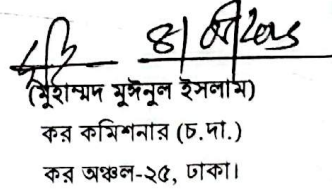 (মুহাম্মদ মুঈনুল ইসলাম)
কর কমিশনার (চ.দা.)
কর অঞ্চল-২৫, ঢাকা।